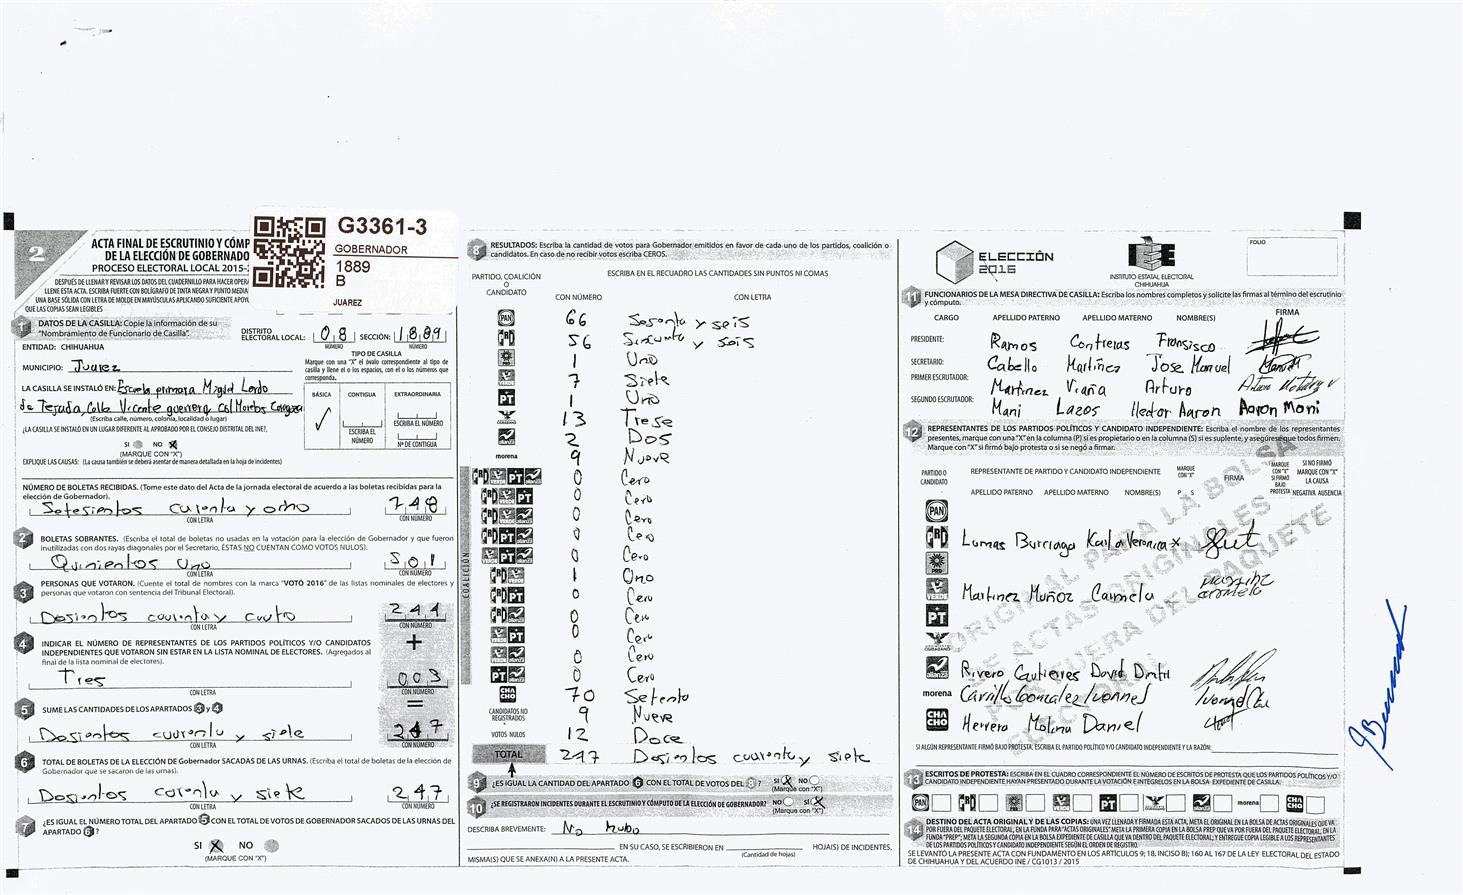 G3361-3
GOBERNADOR
1889
B
JUAREZ
2
ACTA FINAL DE ESCRUTINIO Y CÓMP
DE LA ELECCIÓN DE GOBERNADO
PROCESO ELECTORAL LOCAL 2015-
DESPUÉS DE LLENAR Y REVISAR LOS DATOS DEL CUADERNILLO PARA HACER OPERA
LLENE ESTA ACTA. ESCRIBA FUERTE CON BOLÍGRAFO DE TINTA NEGRA Y PUNTO MEDIA
UNA BASE SÓLIDA CON LETRA DE MOLDE EN MAYÚSCULAS APLICANDO SUFICIENTE APOY
QUE LAS COPIAS SEAN LEGIBLES
1 DATOS DE LA CASILLA: Copie la información de su
"Nombramiento de Funcionario de Casilla".
DISTRITO ELECTORAL LOCAL: 08 SECCIÓN: 1889
NÚMERO NÚMERO
ENTIDAD: CHIHUAHUA
MUNICIPIO: Juarez
LA CASILLA SE INSTALÓ EN: Escuela primara Migel Lerdo
de Tejada, Calle Vicente guerrero Col Morelos
(Escriba calle, número, colonia, localidad o lugar)
¿LA CASILLA SE INSTALÓ EN UN LUGAR DIFERENTE AL APROBADO POR EL CONSEJO DISTRITAL DEL INE?,
SI NO X
(MARQUE CON "X")
EXPLIQUE LAS CAUSAS: (La causa también se deberá asentar de manera detallada en la hoja de incidentes)
TIPO DE CASILLA
Marque con una "X" el óvalo correspondiente al tipo de
casilla y llene el o los espacios, con el o los números que
corresponda.
BÁSICA CONTIGUA EXTRAORDINARIA
✓
ESCRIBA EL NÚMERO
ESCRIBA EL NÚMERO
Nº DE CONTIGUA
NÚMERO DE BOLETAS RECIBIDAS. (Tome este dato del Acta de la jornada electoral de acuerdo a las boletas recibidas para la
elección de Gobernador).
Setesientos curenta y ocho 748
CON LETRA CON NÚMERO
2 BOLETAS SOBRANTES. (Escriba el total de boletas no usadas en la votación para la elección de Gobernador y que fueron
inutilizadas con dos rayas diagonales por el Secretario, ÉSTAS NO CUENTAN COMO VOTOS NULOS).
Quinientos Uno 501
CON LETRA CON NÚMERO
3 PERSONAS QUE VOTARON. (Cuente el total de nombres con la marca "VOTÓ 2016" de las listas nominales de electores y
personas que votaron con sentencia del Tribunal Electoral).
244
CON LETRA CON NÚMERO
+
4 INDICAR EL NÚMERO DE REPRESENTANTES DE LOS PARTIDOS POLÍTICOS Y/O CANDIDATOS
INDEPENDIENTES QUE VOTARON SIN ESTAR EN LA LISTA NOMINAL DE ELECTORES. (Agregados al
final de la lista nominal de electores).
Tres 003
CON LETRA CON NÚMERO
=
5 SUME LAS CANTIDADES DE LOS APARTADOS 3 y 4
Dosientos cuarenta y siete 247
CON LETRA CON NÚMERO
6 TOTAL DE BOLETAS DE LA ELECCIÓN DE Gobernador SACADAS DE LAS URNAS. (Escriba el total de boletas de la elección de
Gobernador que se sacaron de las urnas).
Dosientos carenta y siete 247
CON LETRA CON NÚMERO
7 ¿ES IGUAL EL NÚMERO TOTAL DEL APARTADO 5 CON EL TOTAL DE VOTOS DE GOBERNADOR SACADOS DE LAS URNAS DEL
APARTADO 6?
SI X NO
(MARQUE CON "X")
8 RESULTADOS: Escriba la cantidad de votos para Gobernador emitidos en favor de cada uno de los partidos, coalición o
candidatos. En caso de no recibir votos escriba CEROS.
PARTIDO, COALICIÓN
O
CANDIDATO
ESCRIBA EN EL RECUADRO LAS CANTIDADES SIN PUNTOS NI COMAS
CON NÚMERO CON LETRA
PAN 66 Sesenta y seis
PRD 56 y seis
PRD 1 Uno
VERDE 7 Siete
PT 1 Uno
13 Trese
alianza 2 Dos
morena 9 Nueve
COALICIÓN
PRI VERDE PT alianza 0 Cero
PRI VERDE PT 0 Cero
PRI VERDE alianza 0 Cero
PRI PT alianza 0 Cero
VERDE PT alianza 0 Cero
PRI VERDE 1 Uno
PRI PT 0 Cero
PRI alianza 0 Cero
VERDE PT 0 Cero
VERDE alianza 0 Cero
PT alianza 0 Cero
CHACHO 70 Setenta
CANDIDATOS NO
REGISTRADOS 9 Nueve
VOTOS NULOS 12 Doce
TOTAL 247 Dosientos cuarenta y siete
9 ¿ES IGUAL LA CANTIDAD DEL APARTADO 6 CON EL TOTAL DE VOTOS DEL 8? SI X NO
(Marque con "X")
10 ¿SE REGISTRARON INCIDENTES DURANTE EL ESCRUTINIO Y CÓMPUTO DE LA ELECCIÓN DE GOBERNADOR? NO SI X
(Marque con "X")
DESCRIBA BREVEMENTE: No hubo
EN SU CASO, SE ESCRIBIERON EN HOJA(S) DE INCIDENTES,
(Cantidad de hojas)
MISMA(S) QUE SE ANEXA(N) A LA PRESENTE ACTA.
ELECCIÓN
2016
IEE
INSTITUTO ESTATAL ELECTORAL
CHIHUAHUA
FOLIO
11 FUNCIONARIOS DE LA MESA DIRECTIVA DE CASILLA: Escriba los nombres completos y solicite las firmas al término del escrutinio
y cómputo.
CARGO APELLIDO PATERNO APELLIDO MATERNO NOMBRE(S) FIRMA
PRESIDENTE: Ramos Contreras Fransisco
SECRETARIO: Cabello Martinez Jose Manuel
PRIMER ESCRUTADOR: Martinez Viaña Arturo
SEGUNDO ESCRUTADOR: Mani Lazos Hector Aaron Aaron Mani
12 REPRESENTANTES DE LOS PARTIDOS POLÍTICOS Y CANDIDATO INDEPENDIENTE: Escriba el nombre de los representantes
presentes, marque con una "X" en la columna (P) si es propietario o en la columna (S) si es suplente, y asegúrese que todos firmen.
Marque con "X" si firmó bajo protesta o si se negó a firmar.
PARTIDO O
CANDIDATO
REPRESENTANTE DE PARTIDO Y CANDIDATO INDEPENDIENTE
MARQUE CON "X"
FIRMA
MARQUE CON "X" SI FIRMÓ BAJO PROTESTA
SI NO FIRMÓ MARQUE CON "X" LA CAUSA
APELLIDO PATERNO APELLIDO MATERNO NOMBRE(S) P S NEGATIVA AUSENCIA
PAN
Lumas Burciaga Karla Veronica X
PRD
VERDE Martinez Muñoz Carmela
PT
alianza Rivero Gutierres David
morena Carrillo Gonzalez Ivonne
CHACHO Herrera Molina Daniel
ORIGINAL PARA LA BOLSA
DE ACTAS ORIGINALES
POR FUERA DEL PAQUETE
ELECTORAL
SI ALGÚN REPRESENTANTE FIRMÓ BAJO PROTESTA, ESCRIBA EL PARTIDO POLÍTICO Y/O CANDIDATO INDEPENDIENTE Y LA RAZÓN:
13 ESCRITOS DE PROTESTA: ESCRIBA EN EL CUADRO CORRESPONDIENTE EL NÚMERO DE ESCRITOS DE PROTESTA QUE LOS PARTIDOS POLÍTICOS Y/O
CANDIDATO INDEPENDIENTE HAYAN PRESENTADO DURANTE LA VOTACIÓN E INTÉGRELOS EN LA BOLSA EXPEDIENTE DE CASILLA.
PAN PRI PRD VERDE PT alianza morena CHACHO
14 DESTINO DEL ACTA ORIGINAL Y DE LAS COPIAS: UNA VEZ LLENADA Y FIRMADA ESTA ACTA, META EL ORIGINAL EN LA BOLSA DE ACTAS ORIGINALES QUE VA
POR FUERA DEL PAQUETE ELECTORAL, EN LA FUNDA PARA "ACTAS ORIGINALES" META LA PRIMERA COPIA EN LA BOLSA PREP QUE VA POR FUERA DEL PAQUETE ELECTORAL; EN LA
FUNDA "PREP"; META LA SEGUNDA COPIA EN LA BOLSA EXPEDIENTE DE CASILLA QUE VA DENTRO DEL PAQUETE ELECTORAL; Y ENTREGUE COPIA LEGIBLE A LOS REPRESENTANTES
DE LOS PARTIDOS POLÍTICOS Y CANDIDATO INDEPENDIENTE SEGÚN EL ORDEN DE REGISTRO.
SE LEVANTÓ LA PRESENTE ACTA CON FUNDAMENTO EN LOS ARTÍCULOS 9; 18, INCISO B); 160 AL 167 DE LA LEY ELECTORAL DEL ESTADO
DE CHIHUAHUA Y DEL ACUERDO INE / CG1013 / 2015